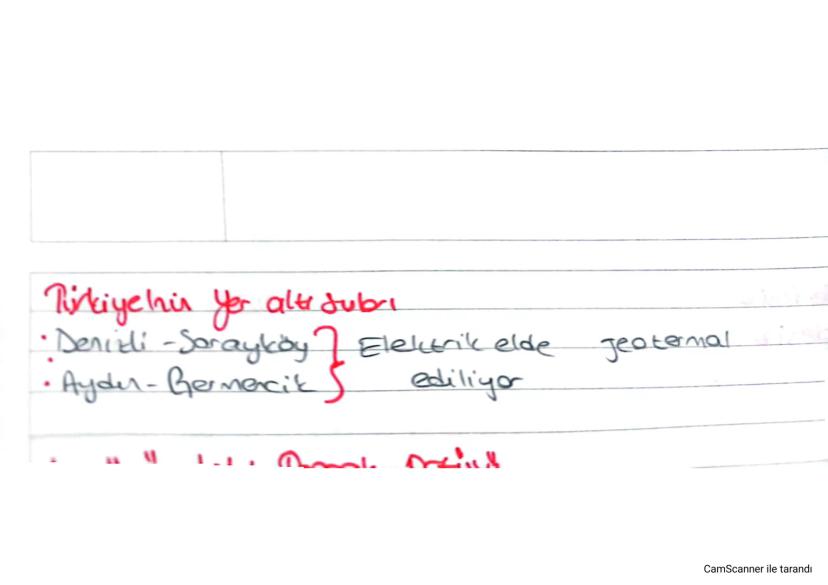 Türkiye'nin Yer altı suları
• Denizli - Sarayköy } Elektrik elde jeotermal
• Aydın - Germencik } ediliyor
CamScanner ile tarandı